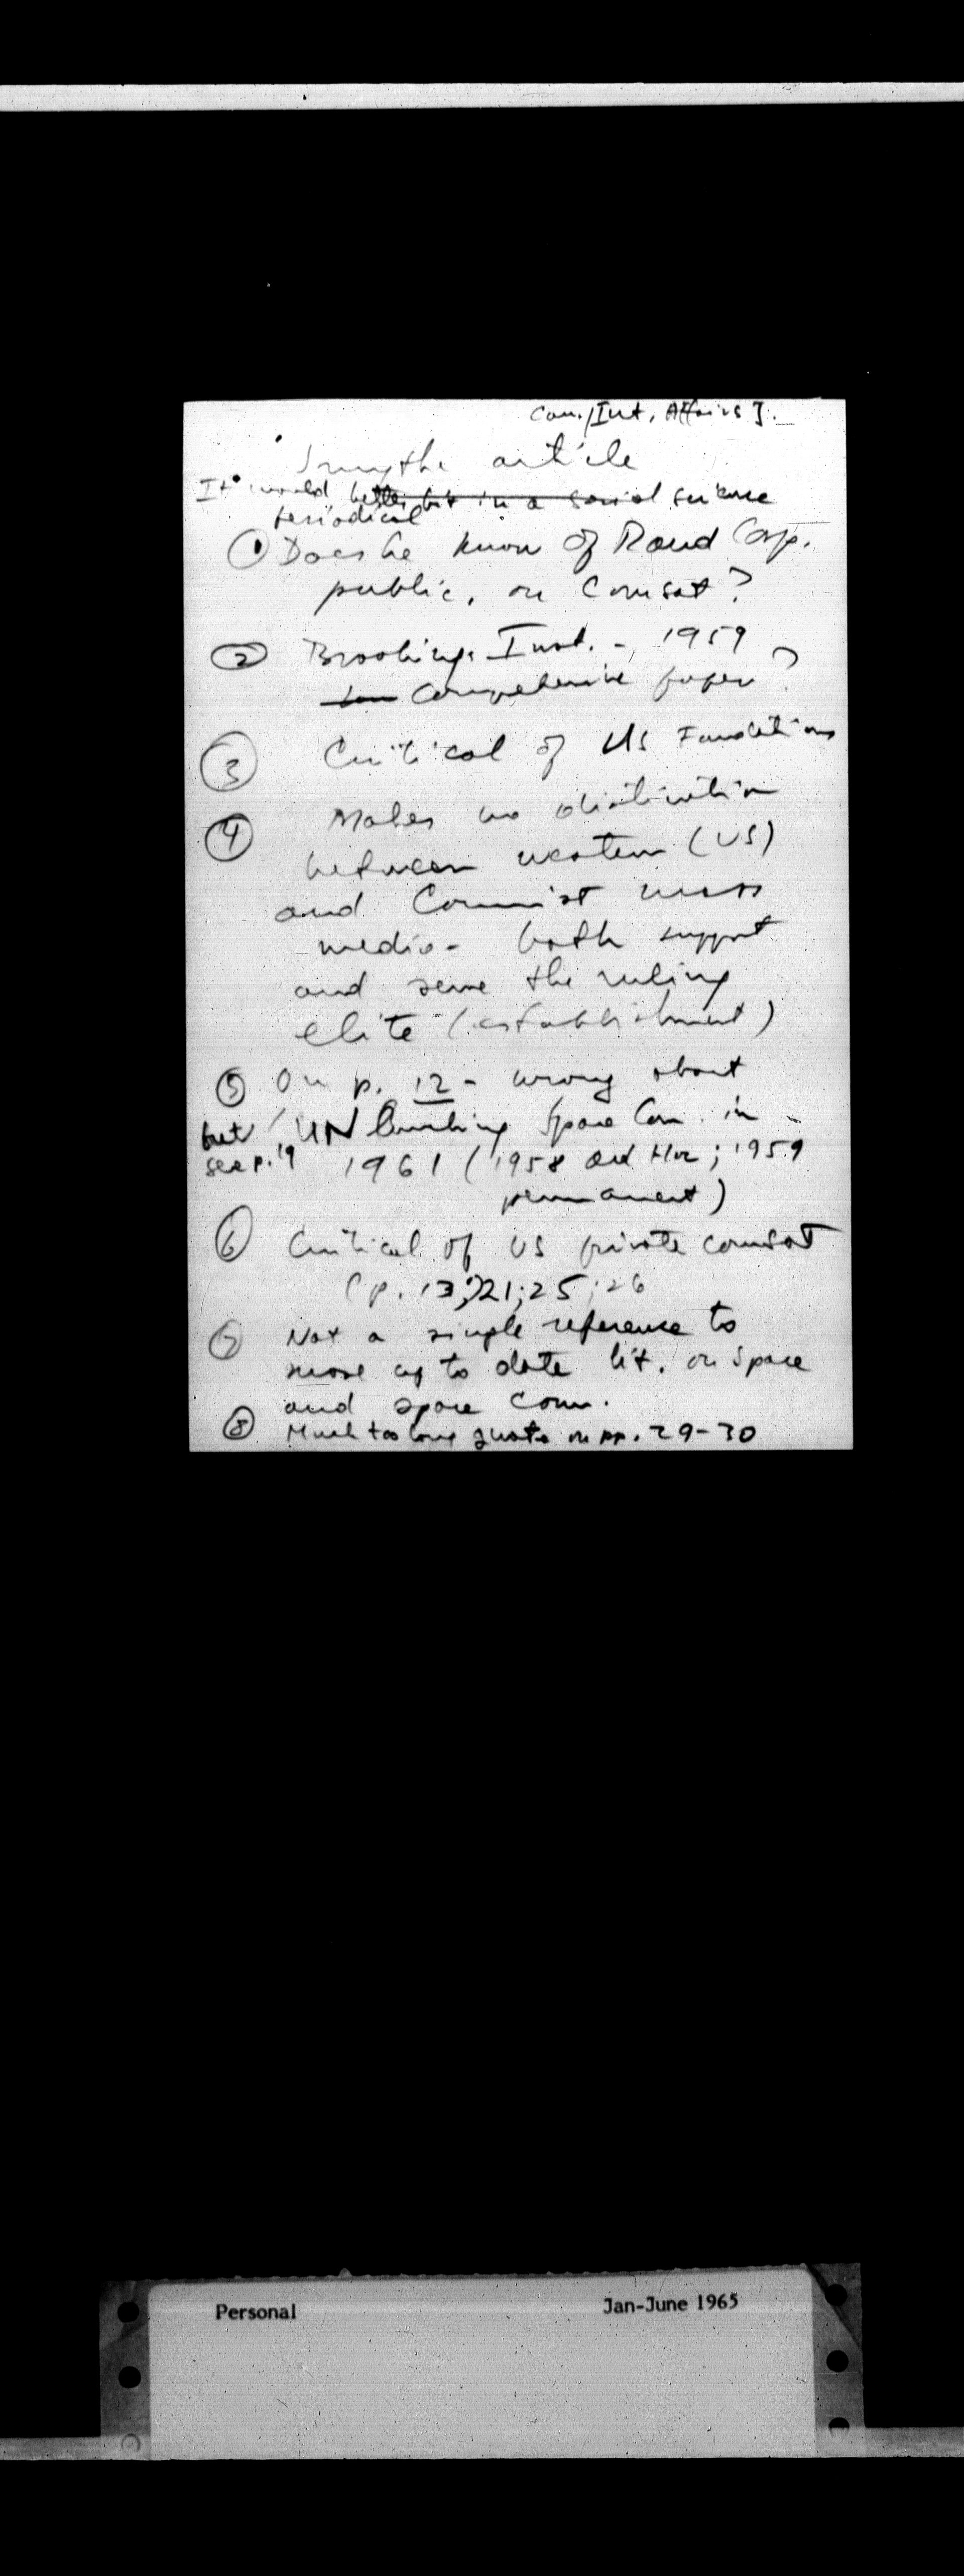 Com./Int. Affairs J.
Smythe article
It would better fit in a social science
periodical
① Does he know of Rand Corp.
public. on Comsat?
② Brookings Inst. -, 1959
Comprehensive paper?
③ Critical of US Foundations
④ Makes no distinction
between western (US)
and Commist mass
media - both support
and serve the ruling
elite (establishment)
⑤ On p. 12 - wrong about
but / UN Space Com. in
see p. 19 1961 (1958 ad Hoc; 1959
permanent)
⑥ Critical of US private comsat
(p. 13;)21;25;26
⑦ Not a single reference to
more up to date lit. on space
and space com.
⑧ Much too long quote on pp. 29-30
Personal Jan-June 1965